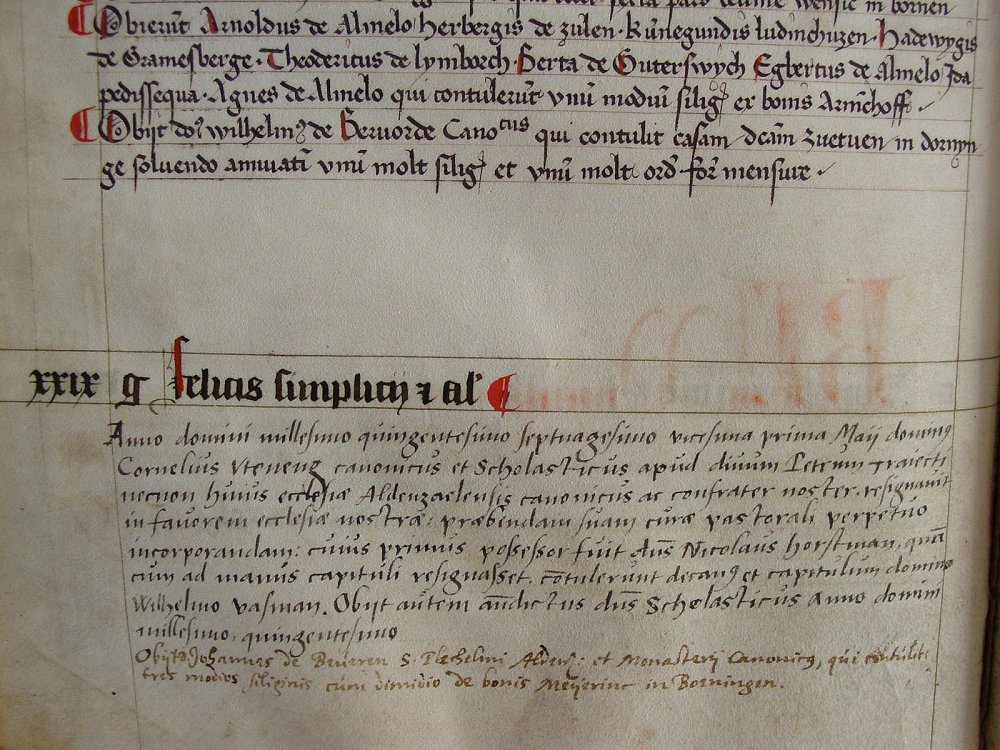 in bornen
Obierūt Arnoldus de Almelo herbergis de zulen · kūnegundis ludinchuzen · hadewygis
de Gramesberge · Theodericus de lymborch · Berta de Guterswych Egbertus de Almelo Ida
pedissequa · Agnes de Almelo qui contulerūt vnū modiū silig ex bonis Armchoff
Obijt do wilhelm de Beruorde Canocus qui contulit casam dcām zuetuen in dornyn
ge soluendo annuatī vnū molt silig et vnū molt ord for mensure
xxix g felicis simplicij et al
Anno domini millesimo quingentesimo septuagesimo vicesima prima Maij dominus
Cornelius vteneng canonicus et Scholasticus apud diuum Petrum traiecti
necnon huius ecclesiæ Aldenzaelensis canonicus ac confrater noster, resignauit
in fauorem ecclesiæ nostræ: præbendam suam curæ pastorali perpetuo
incorporandam: cuius primus possessor fuit dn̄s Nicolaus horstman, quā
cum ad manus capituli resignasset, cōtulerunt decan et capitulum domino
Wilhelmo vasman. Obijt autem ān̄dictus dn̄s Scholasticus Anno domini
millesimo, quingentesimo
Obijt Johannes de Beueren S. Plechelini Aldenz: et Monasterij Canonicq, qui cōtulit
tres modios siliginis cum dimidio de bonis Meyerinc in Borningen.